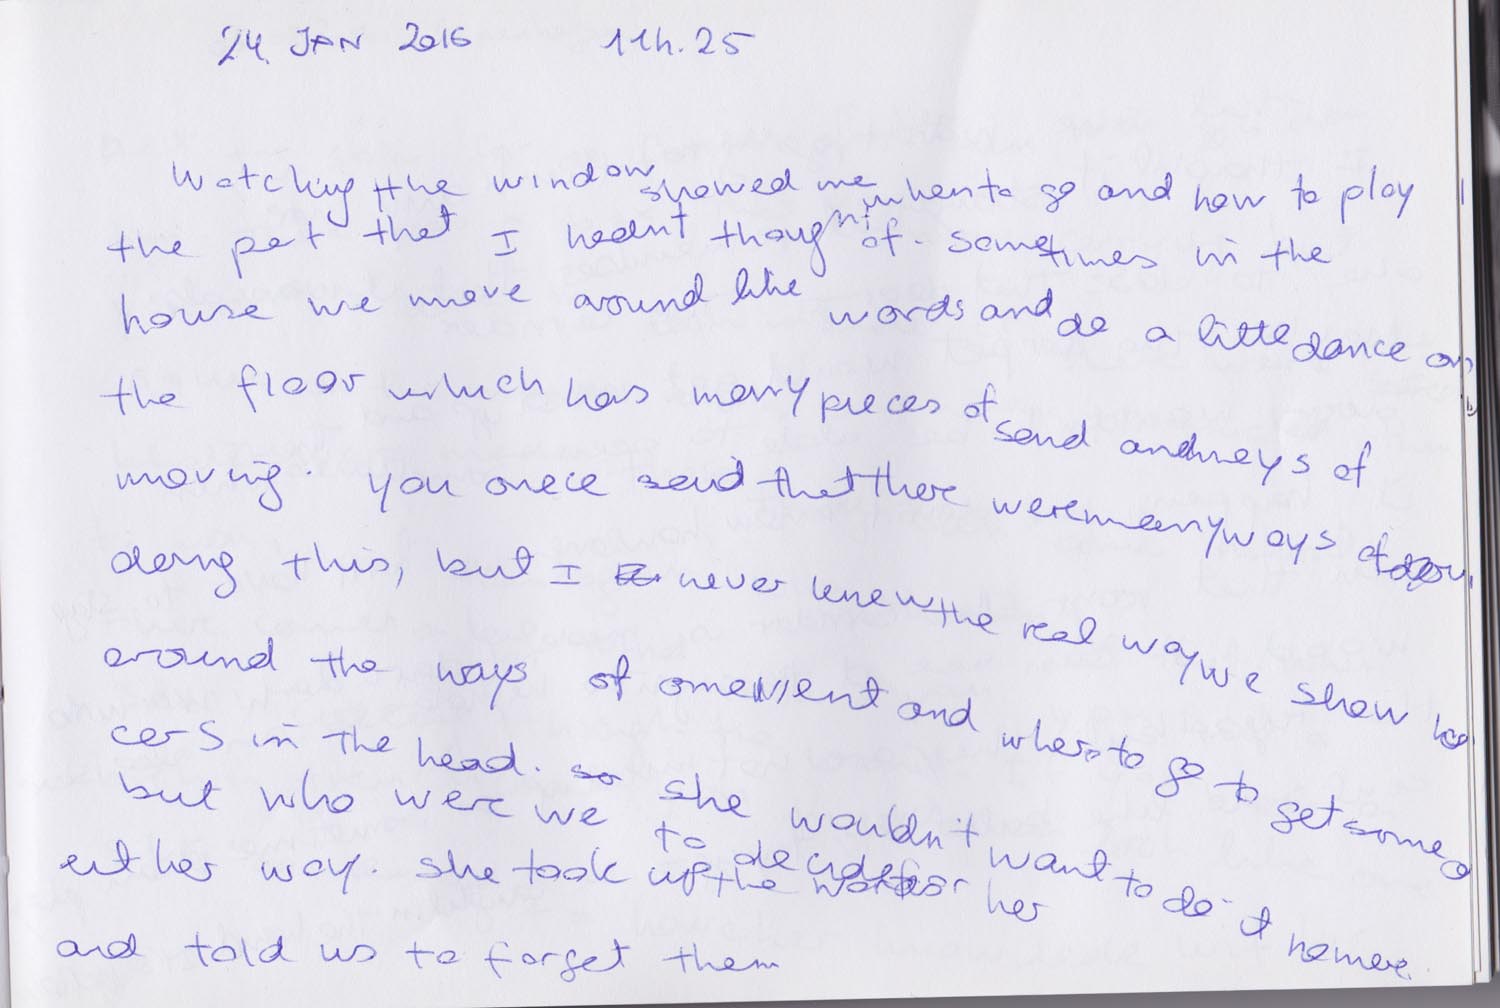 24 JAN 2016 11h.25
Watching the window showed me when to go and how to play
the pet that I hadn't thought of. Sometimes in the
house we move around like words and do a little dance on
the floor which has many pieces of sand and ways of
moving. You once said that there were many ways of
doing this, but I never knew the real way we show
around the ways of and where to go to get some
cers in the head. so she wouldn't want to do it nomore.
but who were we to decide for her
either way. She took up the words
and told us to forget them